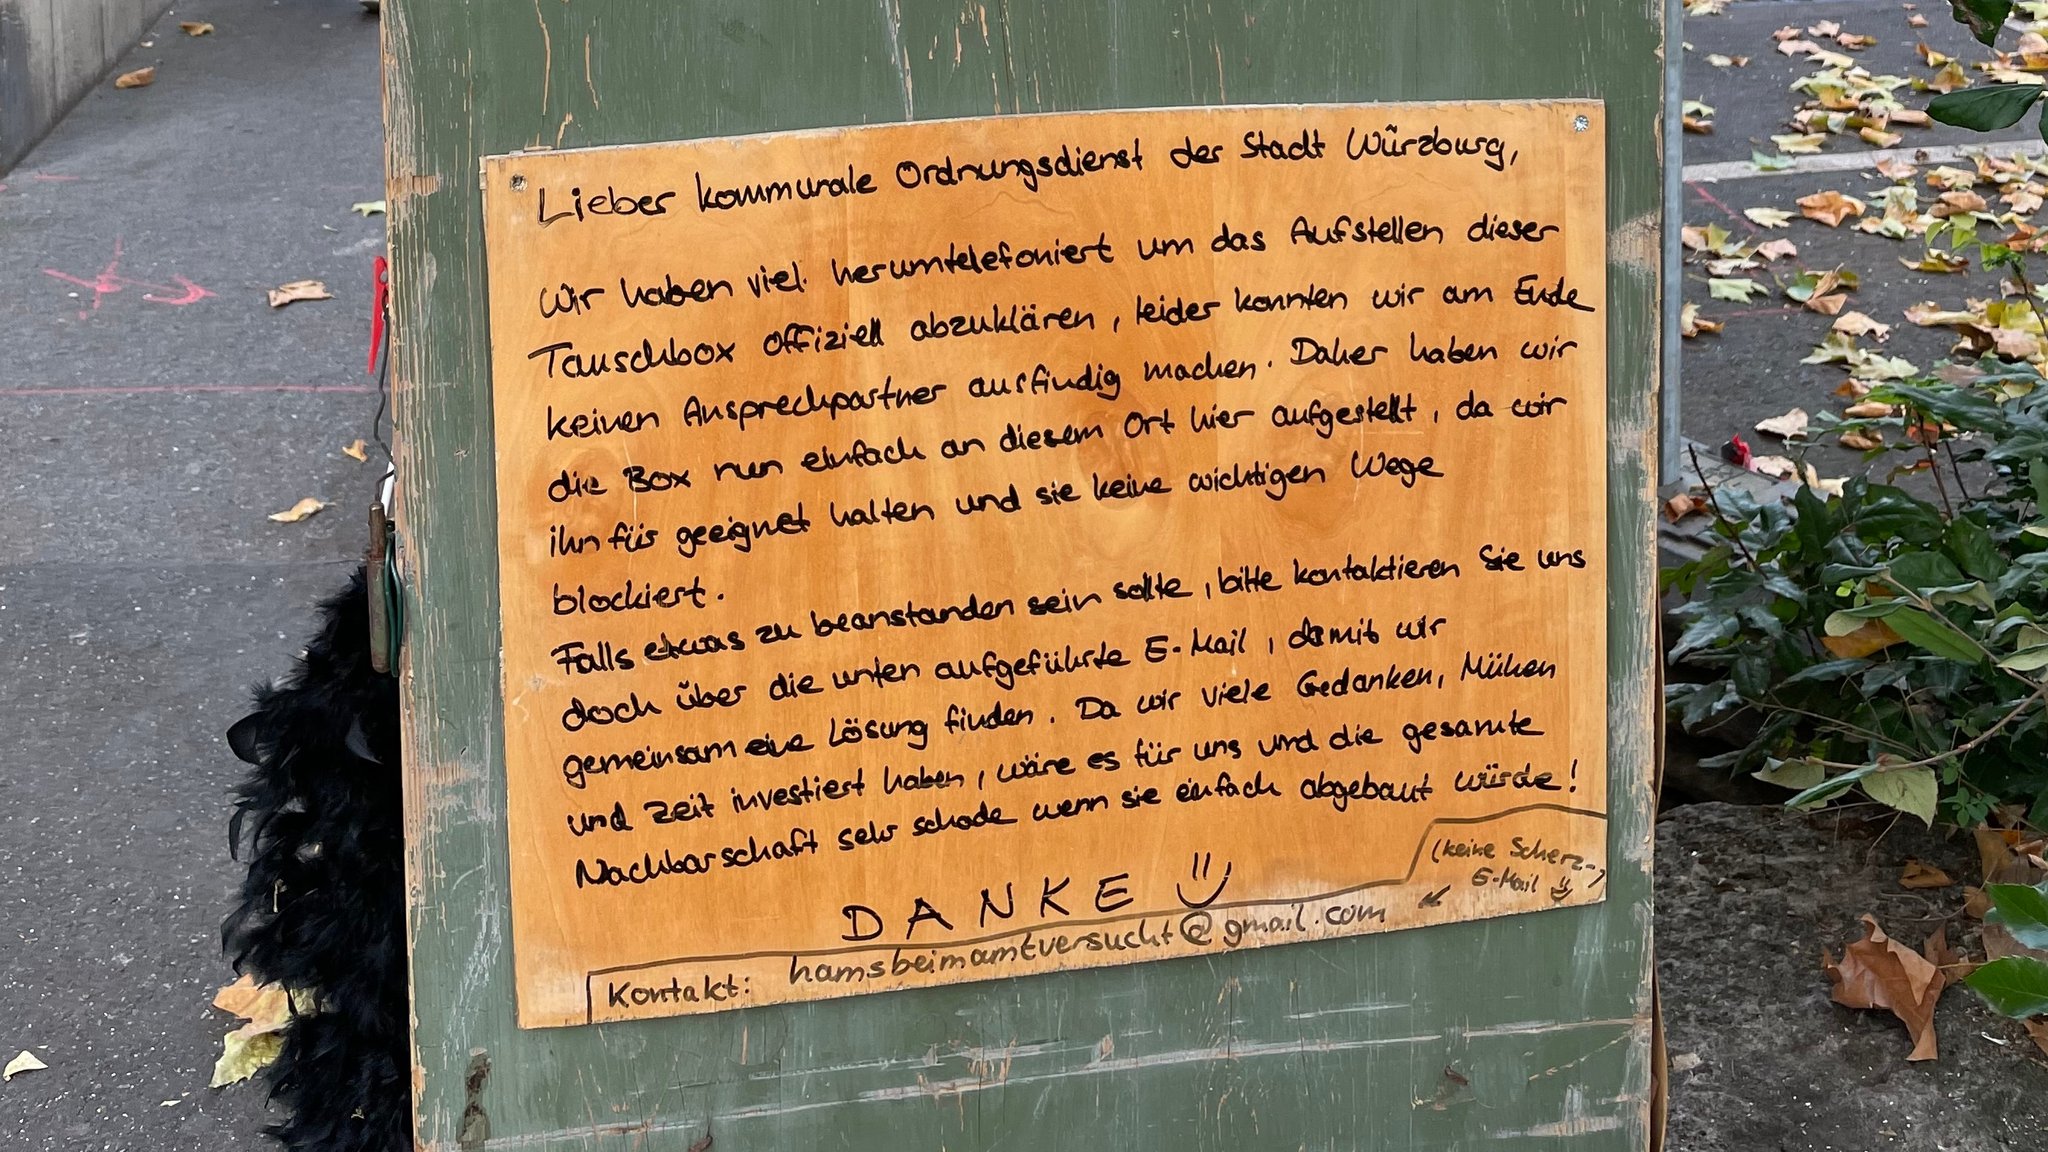 Lieber kommunale Ordnungsdienst der Stadt Würzburg,
Wir haben viel herumtelefoniert um das Aufstellen dieser
Tauschbox offiziell abzuklären, leider konnten wir am Ende
keinen Ansprechpartner ausfindig machen. Daher haben wir
die Box nun einfach an diesem Ort hier aufgestellt, da wir
ihn für geeignet halten und sie keine wichtigen Wege
blockiert.
Falls etwas zu beanstanden sein sollte, bitte kontaktieren Sie uns
doch über die unten aufgeführte E-Mail, damit wir
gemeinsam eine Lösung finden. Da wir viele Gedanken, Mühen
und Zeit investiert haben, wäre es für uns und die gesamte
Nachbarschaft sehr schade wenn sie einfach abgebaut würde!
DANKE
(keine Scherz-
E-Mail)
Kontakt: hamsbeimamtversucht@gmail.com